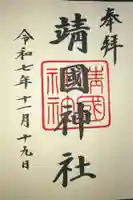 奉拝
靖國神社
令和七年十一月十九日
靖国神社